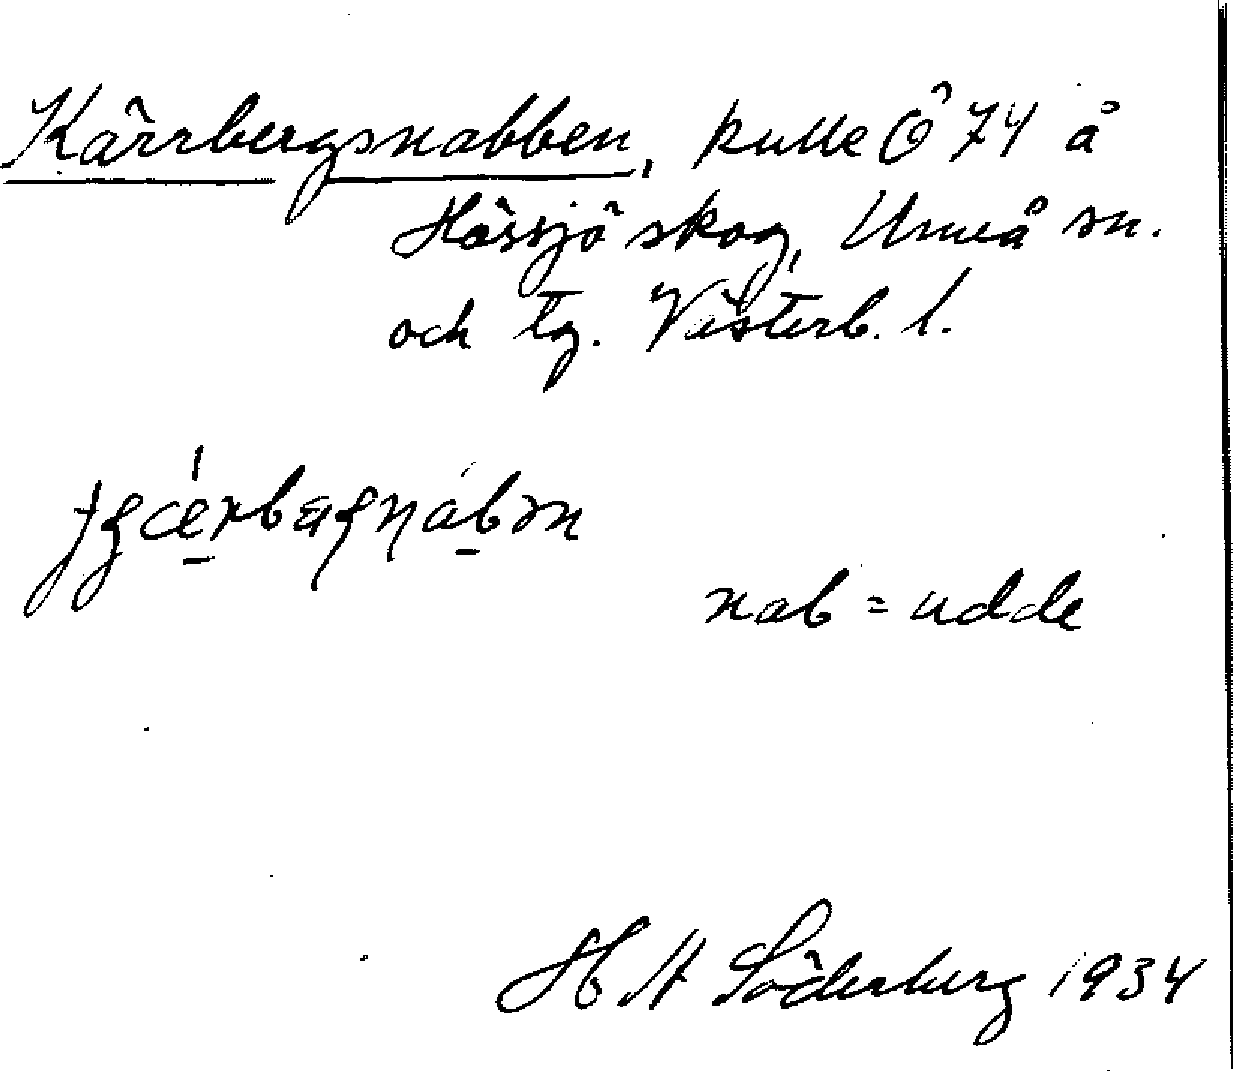 Kärrbergsnabben, kulle Ö 74 å
Hässjö skog, Umeå sn.
och tg. Västerb. l.
nab = udde
H H Söderberg 1934